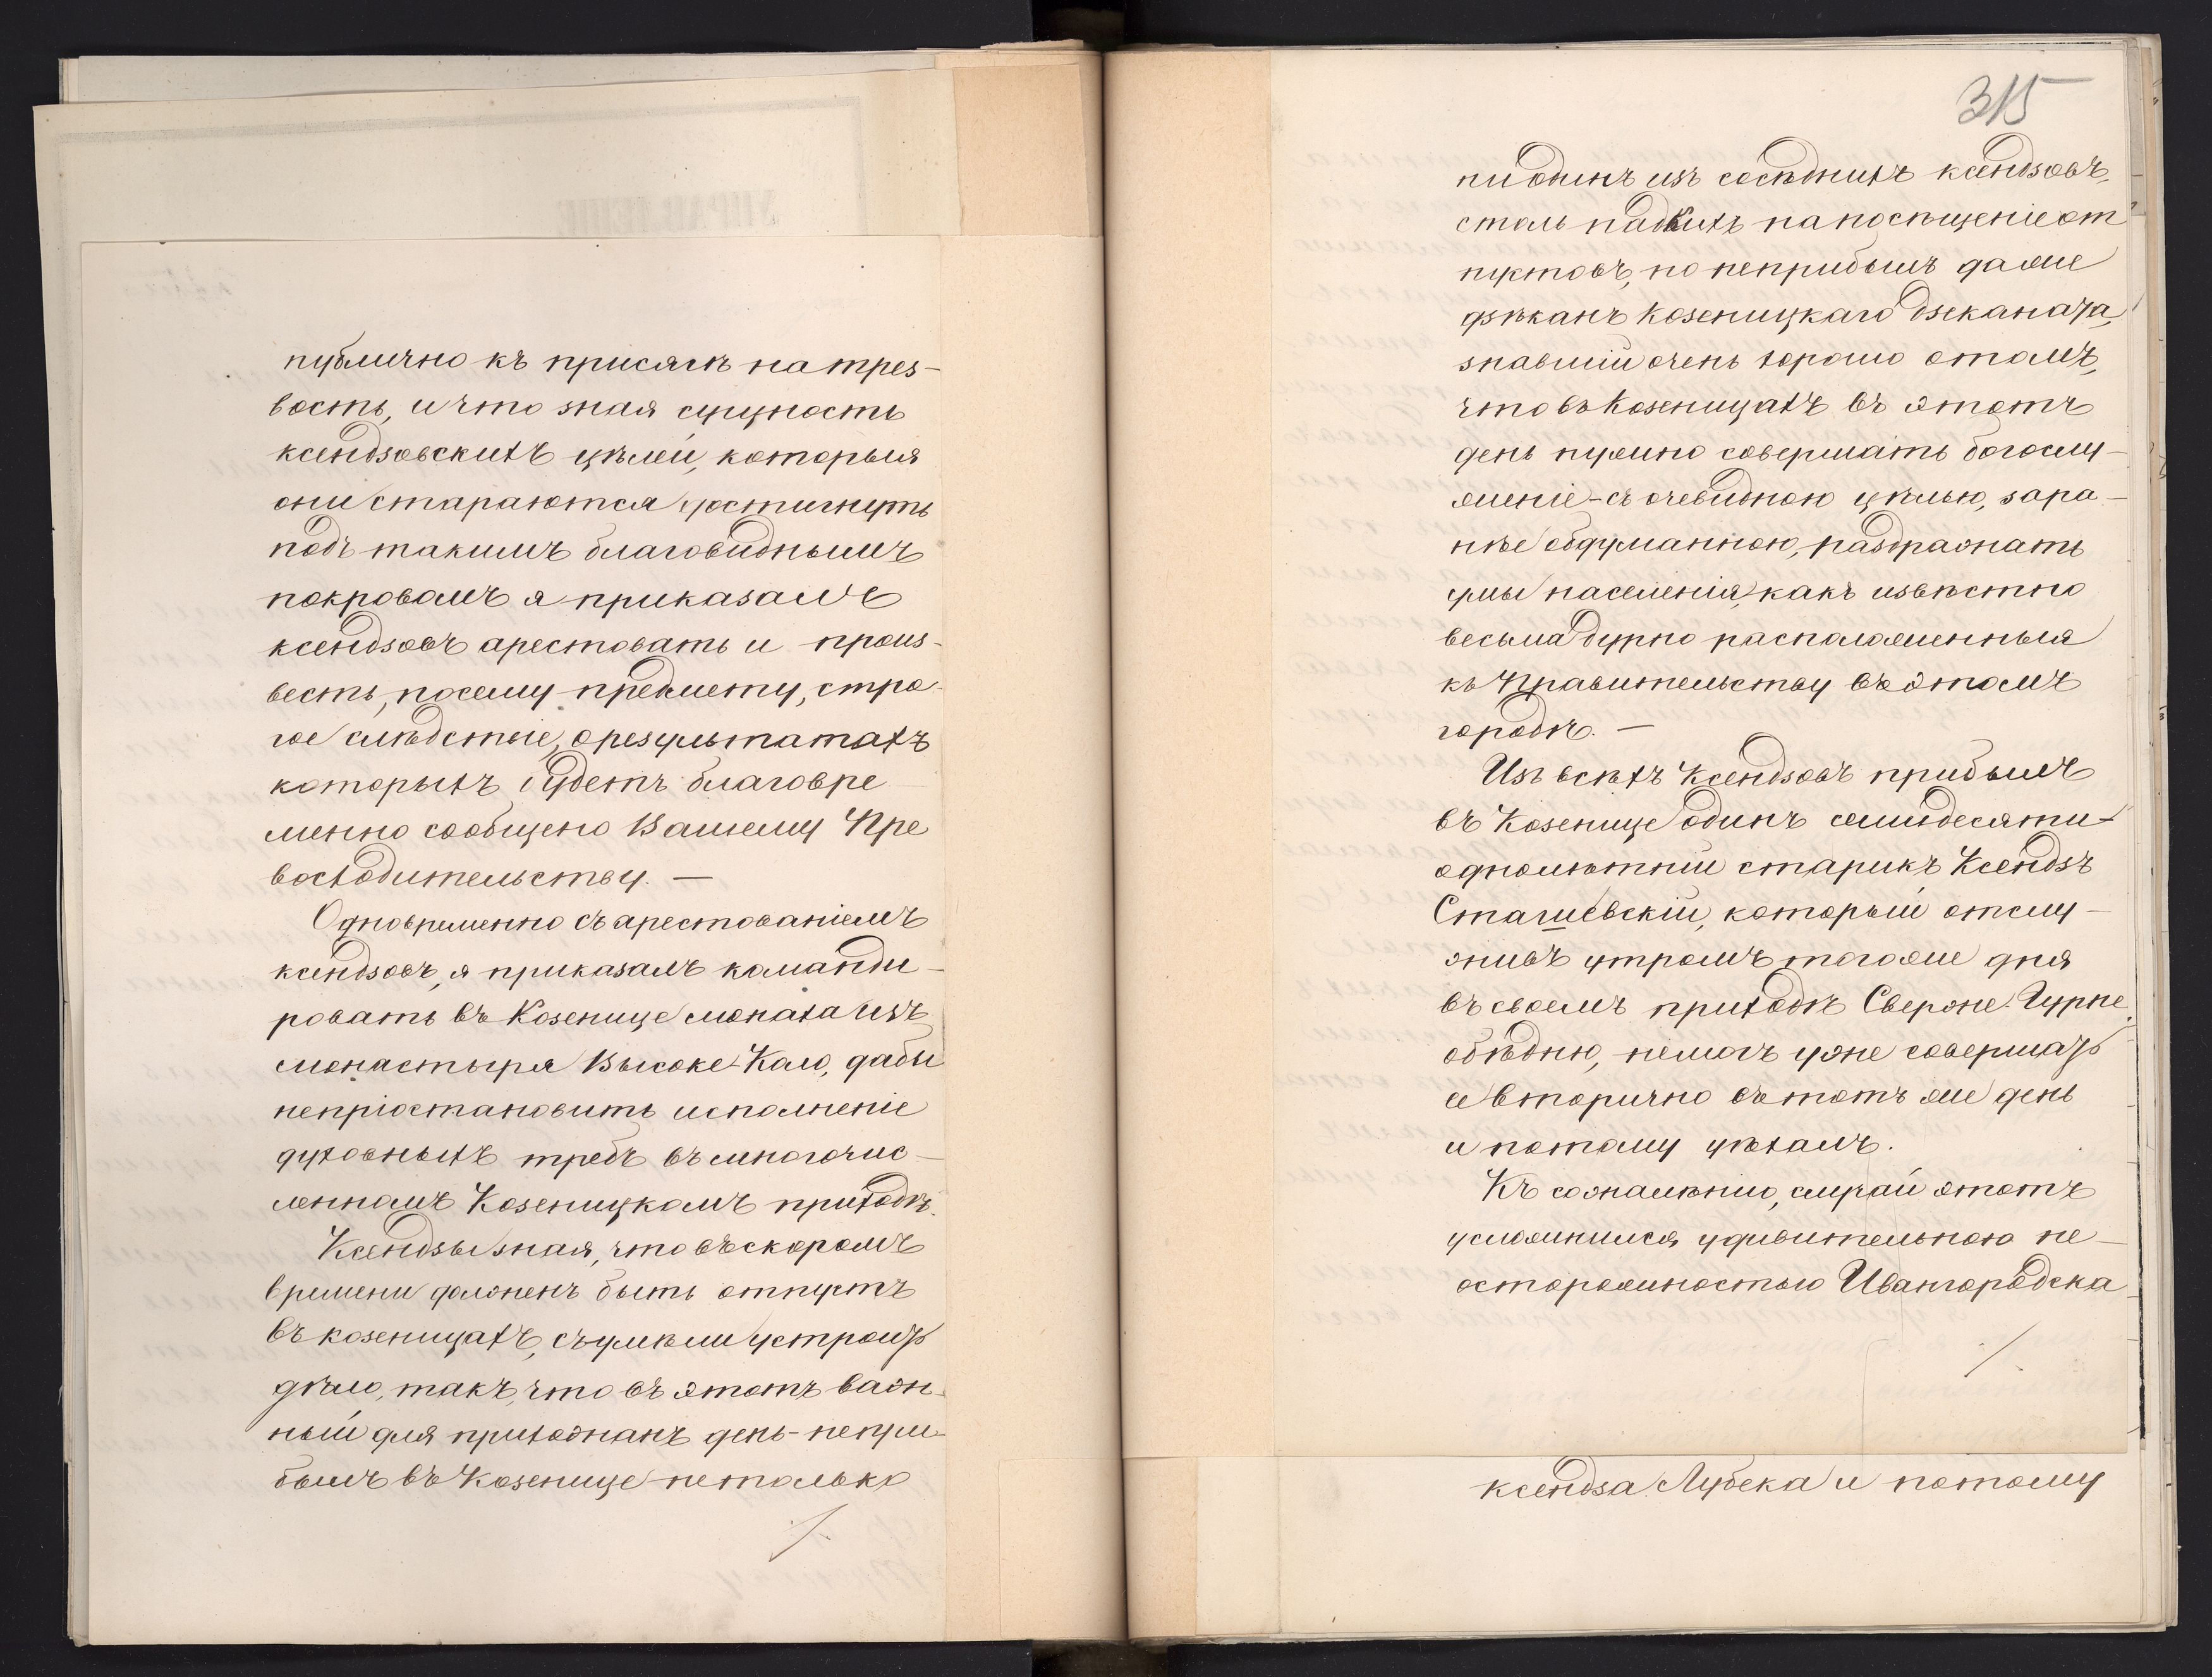 публично къ присягѣ на трез-
вость, и что зная сущность
ксендзовскихъ цѣлей, которыя
они стараются достигнуть
подъ такимъ благовиднымъ
покровомъ я приказалъ
ксендзовъ арестовать и произ-
весть, по сему предмету, стро-
гое слѣдствіе, о результатахъ
которыхъ будетъ благовре
менно сообщено Вашему Пре
восходительству. —
Одновременно съ арестованіемъ
ксендзовъ, я приказалъ команди-
ровать въ Козенице монаха изъ
монастыря Высоке-Коло, дабы
непріостановить исполненіе
духовныхъ требъ въ многочис-
ленномъ Козеницкомъ приходѣ.
Ксендзы зная, что въ скоромъ
времени долженъ быть отпустъ
въ козеницахъ, съумѣли устроить
дѣло, такъ, что въ этотъ важ-
ный для прихожанъ день - непри-
былъ въ Козенице не только
/.
315
ни одинъ изъ сосѣднихъ ксендзовъ,
столь падкихъ на посѣщеніе от
пустовъ, но неприбылъ даже
дзѣканъ Козеницкаго дзеканата,
знавшій очень хорошо о томъ,
что въ Козеницахъ въ этотъ
день нужно совершать богослу-
женіе - съ очевидною цѣлью, зара-
нѣе обдуманною, раздражать
умы населенія, какъ извѣстно
весьма дурно расположенныя
къ Правительству въ этомъ
городѣ. —
Изъ всѣхъ Ксендзовъ прибылъ
въ Козенице одинъ семидесяти-
однолѣтній старикъ Ксендзъ
Сташевскій, который отслу-
живъ утромъ того же дня
въ своемъ приходѣ Сверже-Гурне
обѣдню, немогъ уже совершать
ее вторично въ тотъ же день
и потому уѣхалъ.
Къ сожалѣнію, случай этотъ
усложнился удивительною не-
осторожностью Ивангородска-
/.
ксендза Лубека и потому